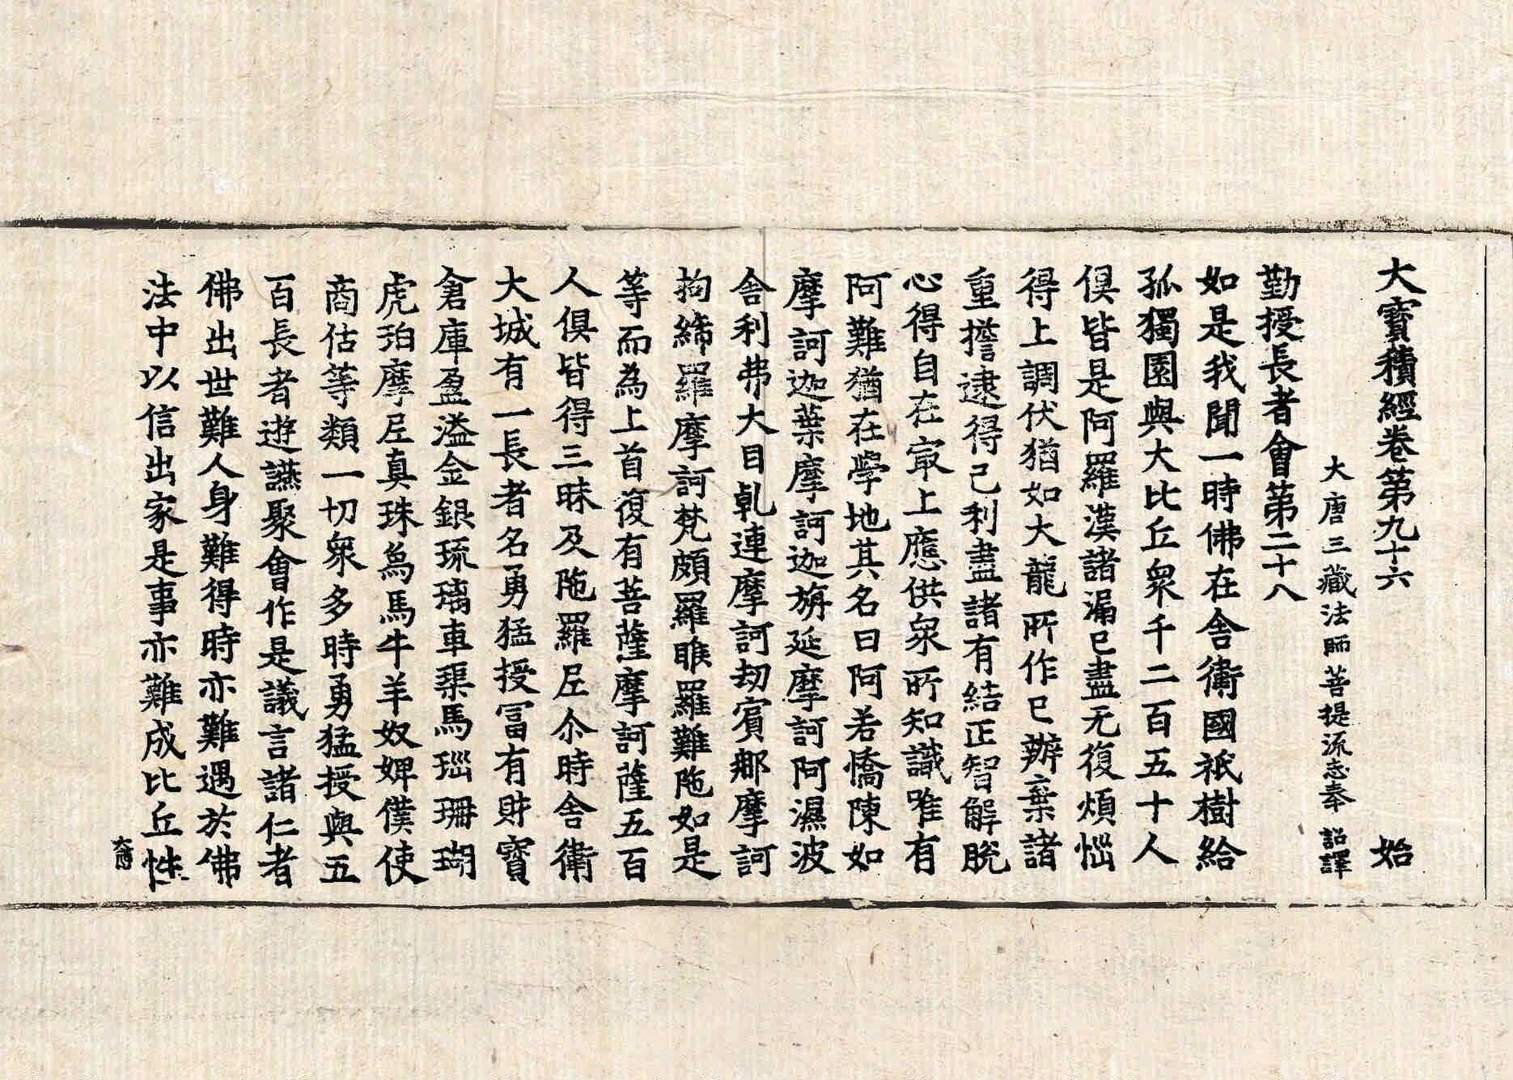 大寶積經卷第九十六　始
大唐三藏法師菩提流志奉　詔譯
勤授長者會第二十八
如是我聞一時佛在舍衛國祇樹給
孤獨園與大比丘衆千二百五十人
俱皆是阿羅漢諸漏已盡无復煩惱
得上調伏猶如大龍所作已辦棄諸
重擔逮得己利盡諸有結正智解脫
心得自在㝡上應供衆所知識唯有
阿難猶在學地其名曰阿若憍陳如
摩訶迦葉摩訶迦旃延摩訶阿濕波
舍利弗大目乹連摩訶劫賓那摩訶
拘絺羅摩訶梵頗羅睺羅難陁如是
等而為上首復有菩薩摩訶薩五百
人俱皆得三昧及陁羅尼尒時舍衛
大城有一長者名勇猛授冨有財寶
倉庫盈溢金銀琉璃車璖馬瑙珊瑚
虎珀摩尼真珠爲馬牛羊奴婢僕使
商估等類一切衆多時勇猛授與五
百長者遊讌聚會作是議言諸仁者
佛出世難人身難得時亦難遇於佛
法中以信出家是事亦難成比丘性